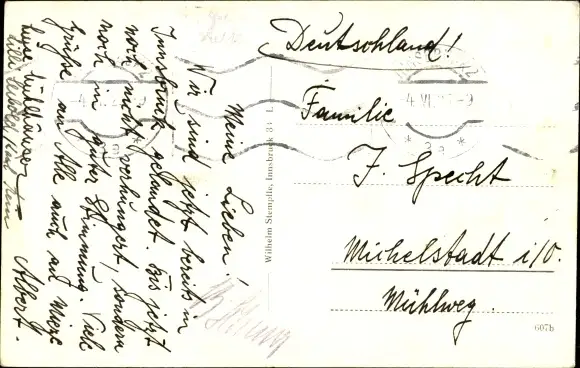 Meine Lieben!
Wir sind jetzt bereits in
Innsbruck gelandet. Bis jetzt
noch nicht verhungert, sondern
noch in guter Stimmung. Viele
Grüße an Alle auch an Mieze
Albert.
Wilhelm Stempfle, Innsbruck 8 L.
Deutschland!
4 VI
9
Familie
J. Specht
Michelstadt i/O.
Mühlweg.
607b